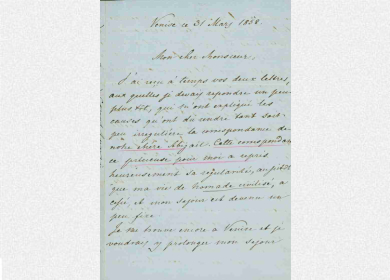 Venise ce 31 Mars 18
Mon cher Monsieur,
J'ai reçu à temps vos deux lettres,
aux quelles je devais repondre un peu
plus tôt, qui m'ont expliqué les
causes qui ont dû rendre tant soit
peu irregulière la correspondance de
notre chère Cette correspondance
si précieuse pour moi a repris
heureusement sa régularité, aussitôt
que ma vie de nomade civilisé, a
cessé, et mon sejour est devenu un
peu fixe
Je me trouve encore à Venise et je
voudrais y prolonger mon sejour